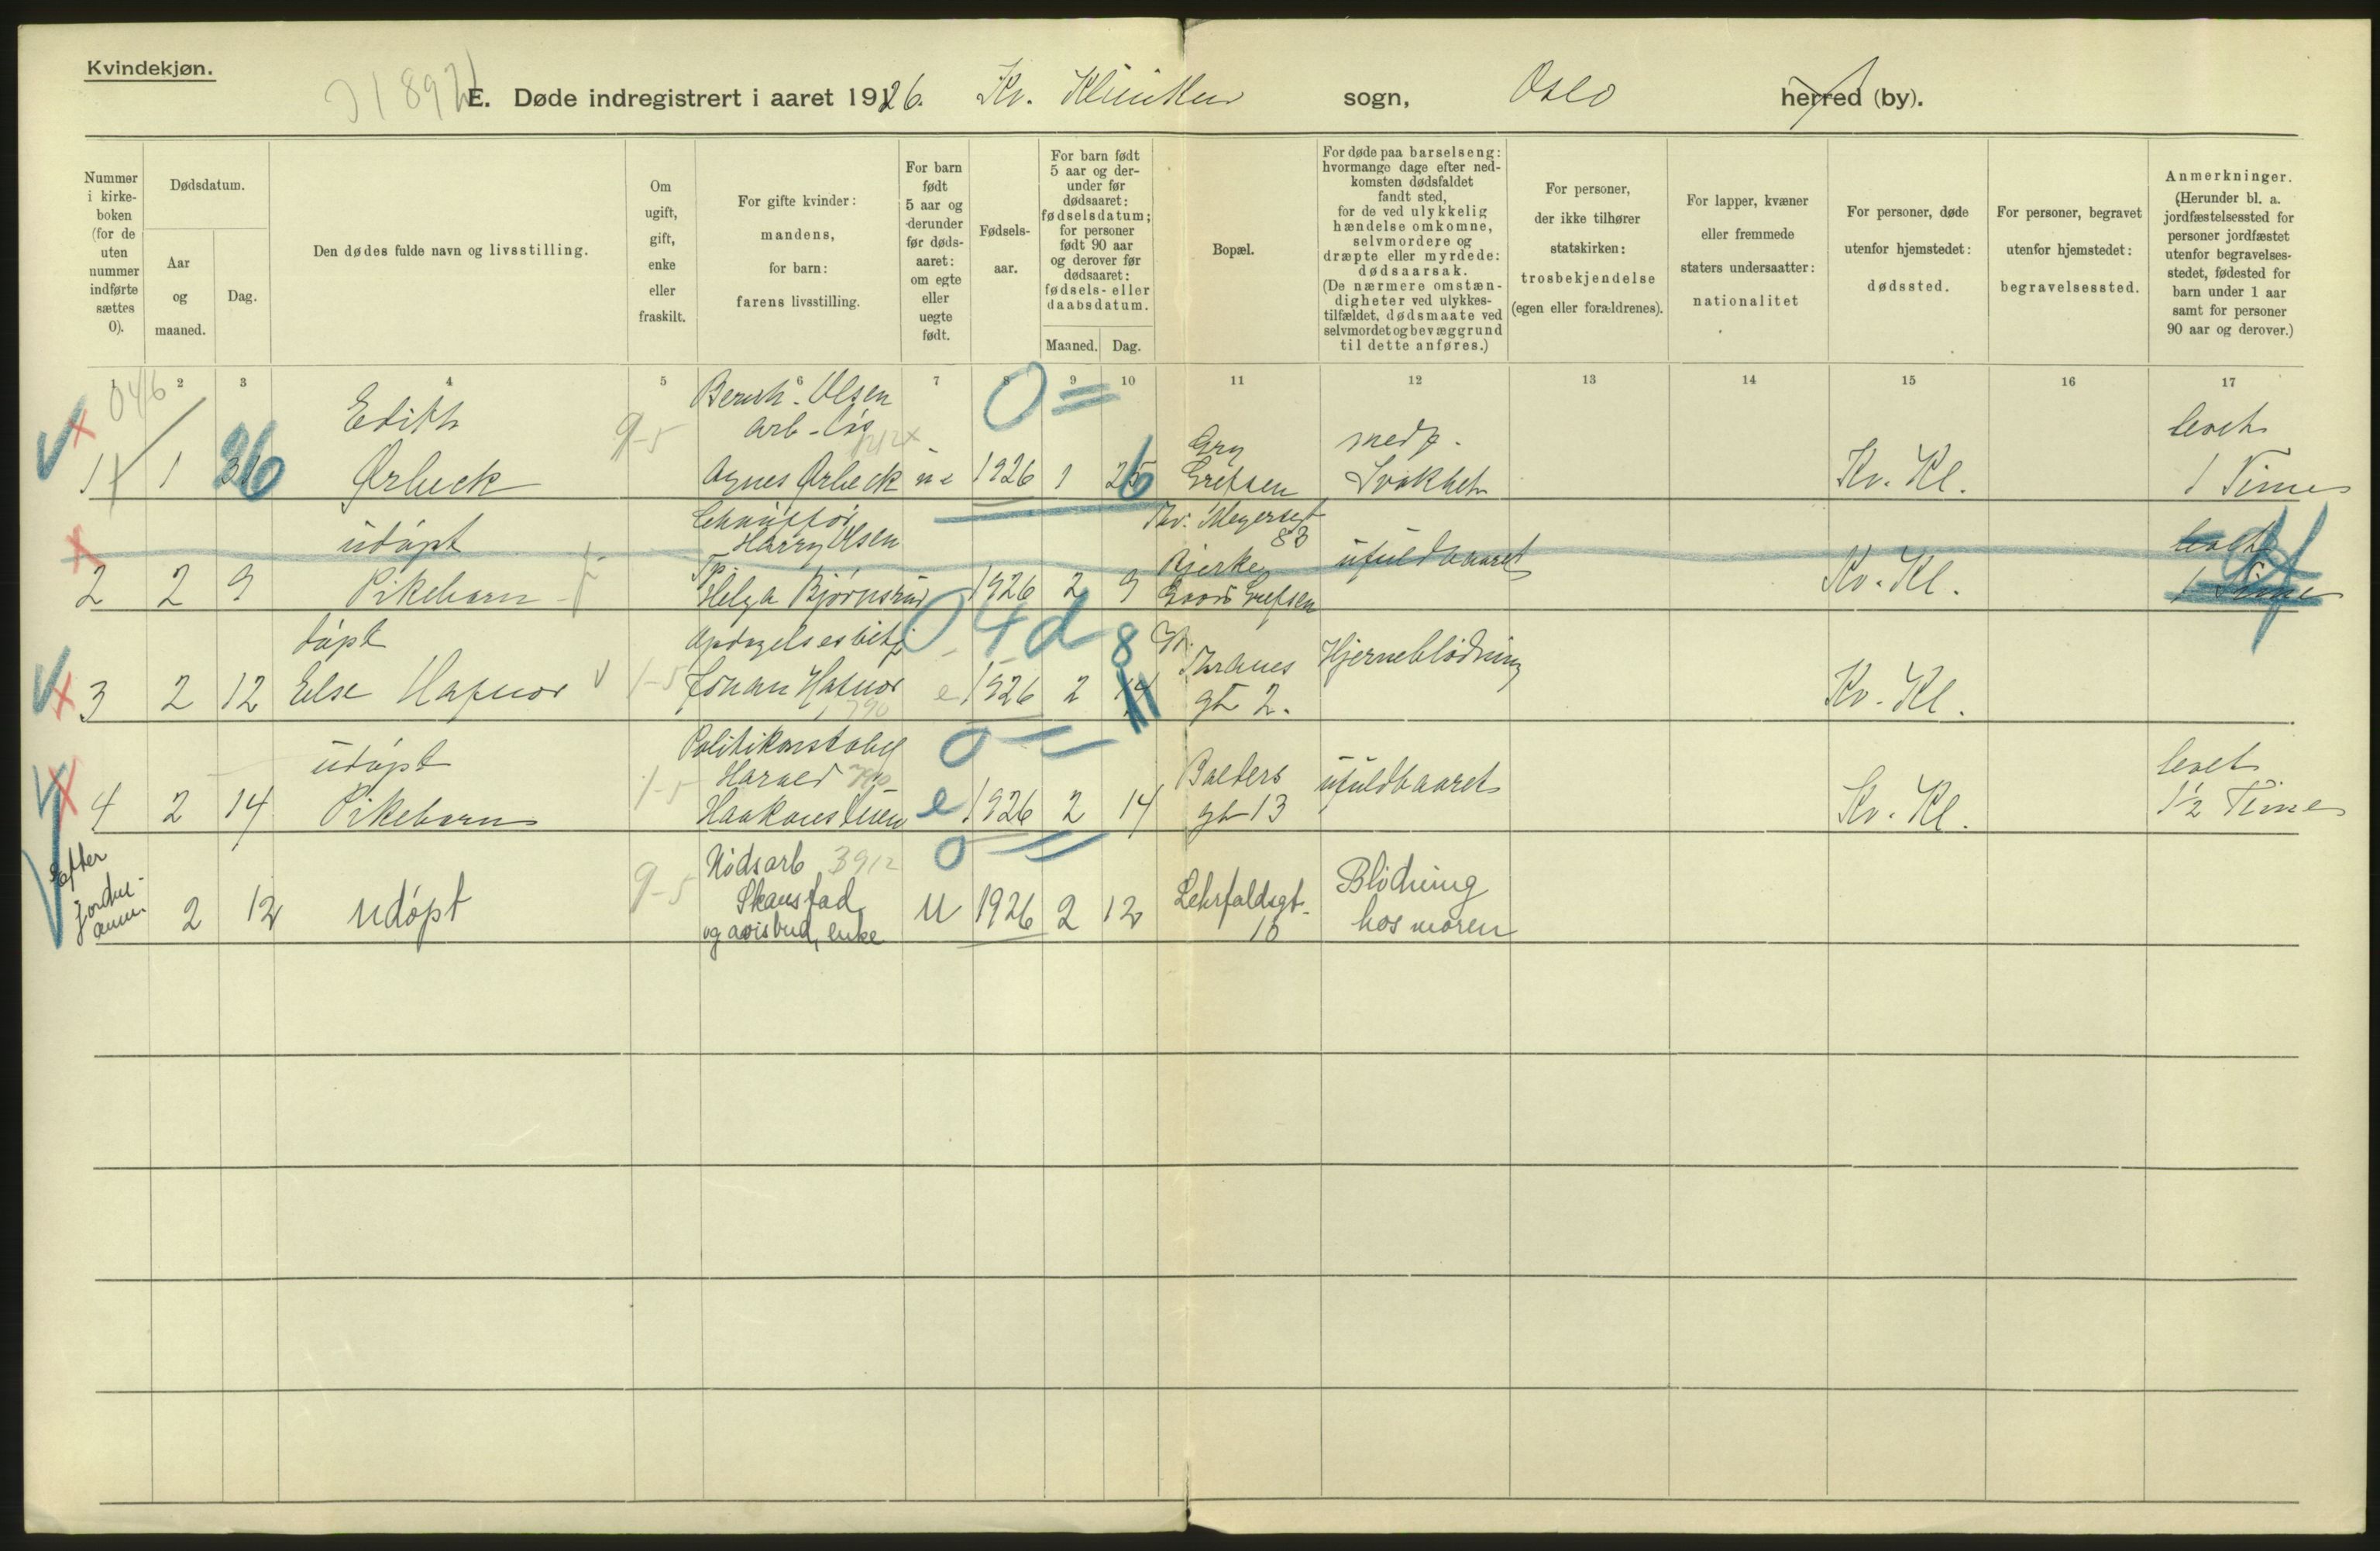 Kvindekjøn.
E. Døde indregistrert i aaret 1926. Kv. Klinikken sogn, Oslo herred (by).
Nummer i kirke-boken (for de uten nummer indførte sættes 0).
Dødsdatum.
Aar og maaned.
Dag.
Den dødes fulde navn og livsstilling.
Om ugift, gift, enke eller fraskilt.
For gifte kvinder: mandens, for barn: farens livsstilling.
For barn født 5 aar og derunder før døds-aaret: om egte eller uegte født.
Fødsels-aar.
For barn født 5 aar og der-under før dødsaaret: fødselsdatum; for personer født 90 aar og derover før dødsaaret: fødsels- eller daabsdatum.
Maaned. Dag.
Bopæl.
For døde paa barselseng: hvormange dage efter ned-komsten dødsfaldet fandt sted, for de ved ulykkelig hændelse omkomne, selvmordere og dræpte eller myrdede: dødsaarsak. (De nærmere omstæn-digheter ved ulykkes-tilfældet, dødsmaate ved selvmordet og bevæggrund til dette anføres.)
For personer, der ikke tilhører statskirken: trosbekjendelse (egen eller forældrenes).
For lapper, kvæner eller fremmede staters undersaatter: nationalitet
For personer, døde utenfor hjemstedet: dødssted.
For personer, begravet utenfor hjemstedet: begravelsessted.
Anmerkninger. (Herunder bl. a. jordfæstelsessted for personer jordfæstet utenfor begravelses-stedet, fødested for barn under 1 aar samt for personer 90 aar og derover.)
2 3 4 5 6 7 8 9 10 11 12 13 14 15 16 17
046
0 =
Edith
Olsen
arb-løs
9-5
medf.
levet
1 1 26 Ørbeck
Agnes Ørbeck u e 1926 1 26
Grefsen
Svakhet
Kv. Kl.
1 Time
udøpt
Chauffør
Harry Olsen
Meyersgt
83
ufuldbaaret
levet
2 2 9 Pikebarn
Helga Bjørnsrud
1926 2 9
Grefsen
Kv. Kl.
1 Time
døpt
0 4 d 8
Hjerneblødning
3 2 12 Else Hafnor
1-5
Johan Hafnor
e 1926 2
Thranes
gt 2.
Kv. Kl.
udøpt
Politikonstabel
0 =
Harald
1-5
Balders
ufuldbaaret
levet
4 2 14 Pikebarn
e 1926 2 14
gt 13
Kv. Kl.
1½ Time
0 =
Efter
jordm.
anm.
2 12 udøpt
9-5
Nødsarb 3912
Skansfad
og avisbud, enke
u 1926 2 12
Blødning
hos moren